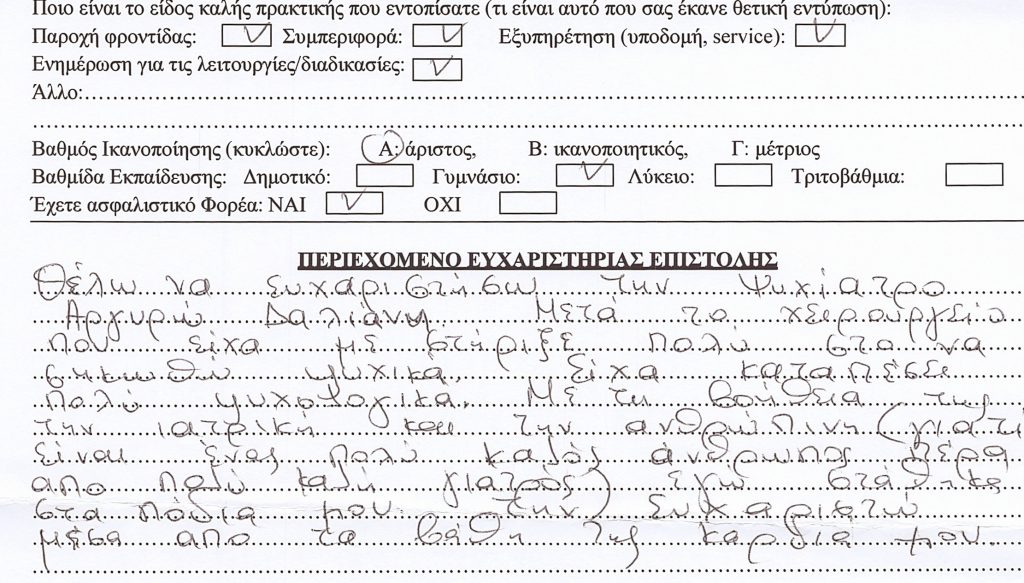 Ποιο είναι το είδος καλής πρακτικής που εντοπίσατε (τι είναι αυτό που σας έκανε θετική εντύπωση):
Παροχή φροντίδας: Συμπεριφορά: Εξυπηρέτηση (υποδομή, service):
Ενημέρωση για τις λειτουργίες/διαδικασίες:
Άλλο:
Βαθμός Ικανοποίησης (κυκλώστε): Α: άριστος, Β: ικανοποιητικός, Γ: μέτριος
Βαθμίδα Εκπαίδευσης: Δημοτικό: Γυμνάσιο: Λύκειο: Τριτοβάθμια:
Έχετε ασφαλιστικό Φορέα: ΝΑΙ ΟΧΙ
ΠΕΡΙΕΧΟΜΕΝΟ ΕΥΧΑΡΙΣΤΗΡΙΑΣ ΕΠΙΣΤΟΛΗΣ
Θέλω να ευχαριστήσω την Ψυχίατρο
Αργυρώ Δαλιάνη Μετά το χειρουργείο
που είχα με στήριξε πολύ στο να
σηκωθώ ψυχικά, είχα καταπέσει
πολύ ψυχολογικά. Με τη βοήθεια της
την ιατρική και την ανθρώπινη (γιατί
είναι ένας πολύ καλός άνθρωπος πέρα
απο πολύ καλή γιατρός) εγώ στάθηκα
στα πόδια μου. την ευχαριστώ
μέσα απο τα βάθη της καρδιά μου.